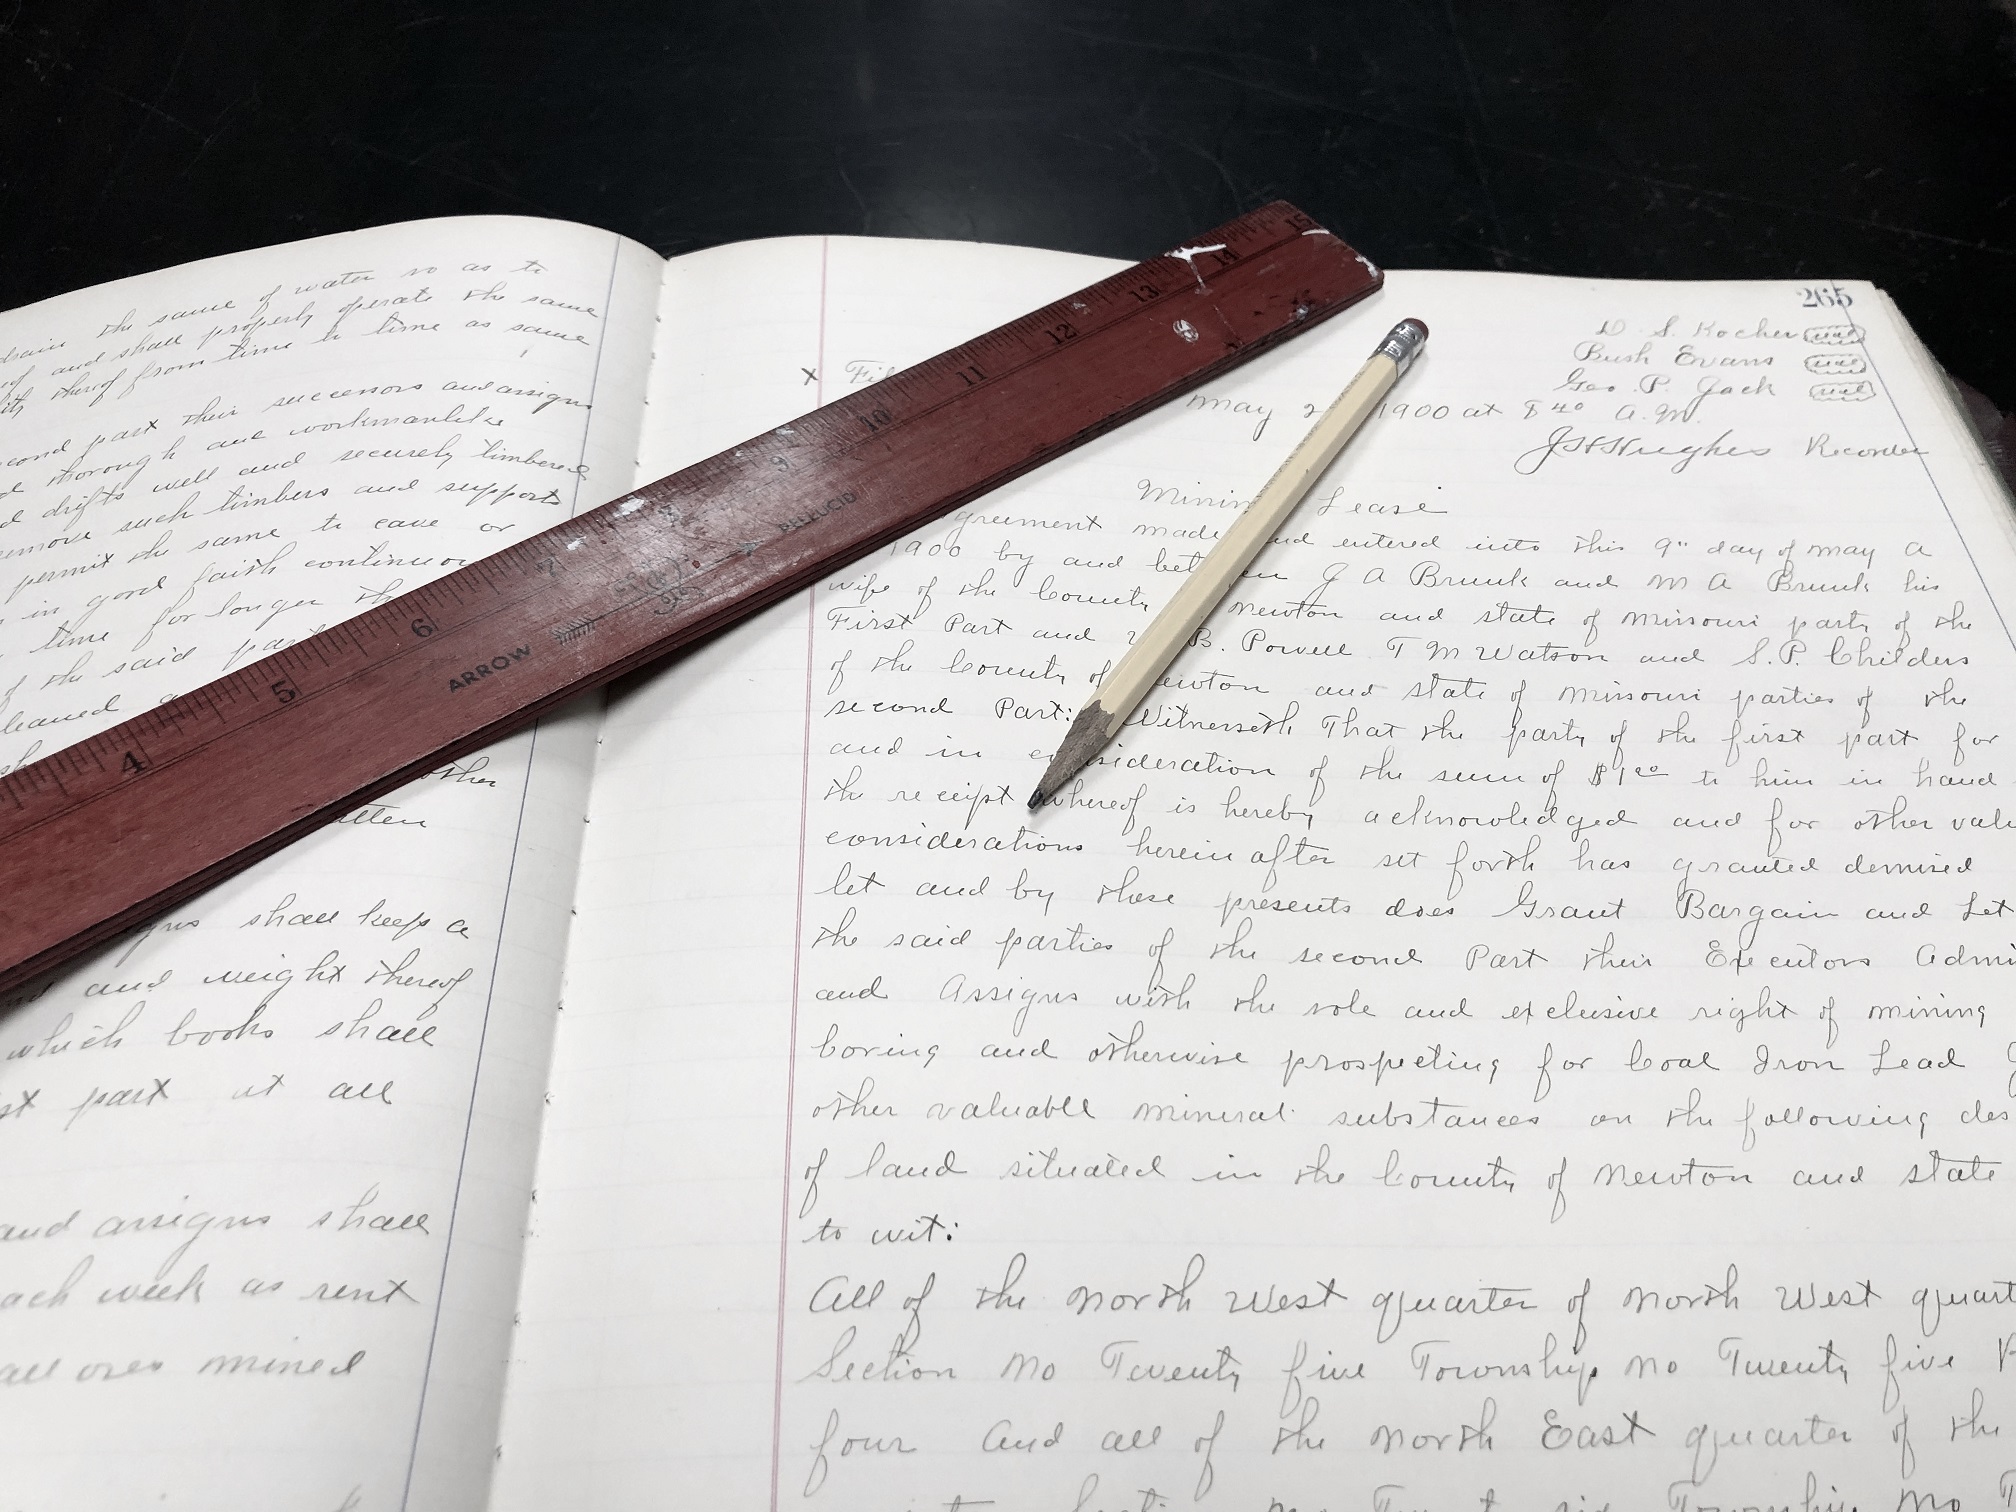 drain the same of water so as to
and shall properly operate the same
thereof from time to time as same
second part their successors and assigns
thorough and workmanlike
drifts well and securely timbered
remove such timbers and support
permit the same to cave or
in good faith continuou
time for longer th
of the said part
leaned
other
itten
gns shall keep a
and weight thereof
which books shall
st part at all
and assigns shall
each week as rent
all ores mined
4 5 6 7 8 9 10 11 12 13 14 15
ARROW
PELLUCID
265
D. S. Kocher seal
Bush Evans seal
Geo. P. Jack seal
x Fil
May 2 1900 at 8 40 A.M.
J H Hughes Recorder
Minin Lease
greement made nd entered into this 9th day of May A
1900 by and bet en J A Brunk and M A Brunk his
wife of the County Newton and state of Missouri party of the
First Part and B. Powell T M Watson and S. P. Childers
of the County of ewton and state of Missouri parties of the
second Part: Witnesseth That the party of the first part for
and in co sideration of the sum of $1 00 to him in hand
the receipt whereof is hereby acknowledged and for other valu
considerations herein after set forth has granted demised
let and by these presents does Grant Bargain and Let
the said parties of the second Part their Executors Admi
and Assigns with the sole and exclusive right of mining
boring and otherwise prospecting for Coal Iron Lead
other valuable mineral substances on the following des
of land situated in the County of Newton and state
to wit:
All of the North West quarter of North West quart
Section No Twenty five Township No Twenty five
four And all of the North East quarter of the
Township No